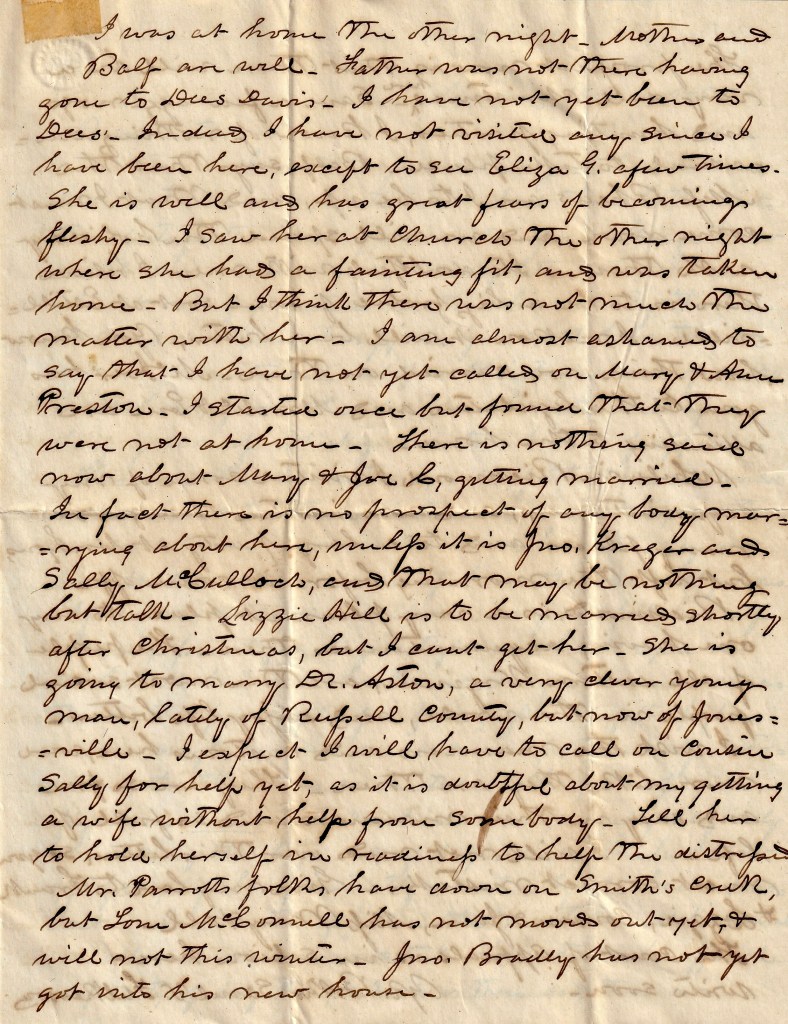 I was at home the other night - Mother and
Balf are well - Father was not there having
gone to Dees Davis' - I have not yet been to
Dees' - Indeed I have not visited any since I
have been here, except to see Eliza G. a few times.
She is well and has great fears of becoming
fleshy - I saw her at Church the other night
where she had a fainting fit, and was taken
home - But I think there was not much the
matter with her - I am almost ashamed to
say that I have not yet called on Mary & Ann
Preston - I started once but found that they
were not at home - There is nothing said
now about Mary & Joe C, getting married -
In fact there is no prospect of any body mar=
=rying about here, unless it is Jno. Kreger and
Sally McCulloch, and that may be nothing
but talk - Lizzie Hill is to be married shortly
after Christmas, but I cant get her - She is
going to marry Dr. Aston, a very clever young
man, lately of Russell County, but now of Jones=
=ville - I expect I will have to call on Cousin
Sally for help yet, as it is doubtful about my getting
a wife without help from somebody - Tell her
to hold herself in readiness to help the distressed
Mr. Parrotts folks have down on Smith's Creek,
but Tom McConnell has not moved out yet, &
will not this winter - Jno. Bradly has not yet
got into his new house -